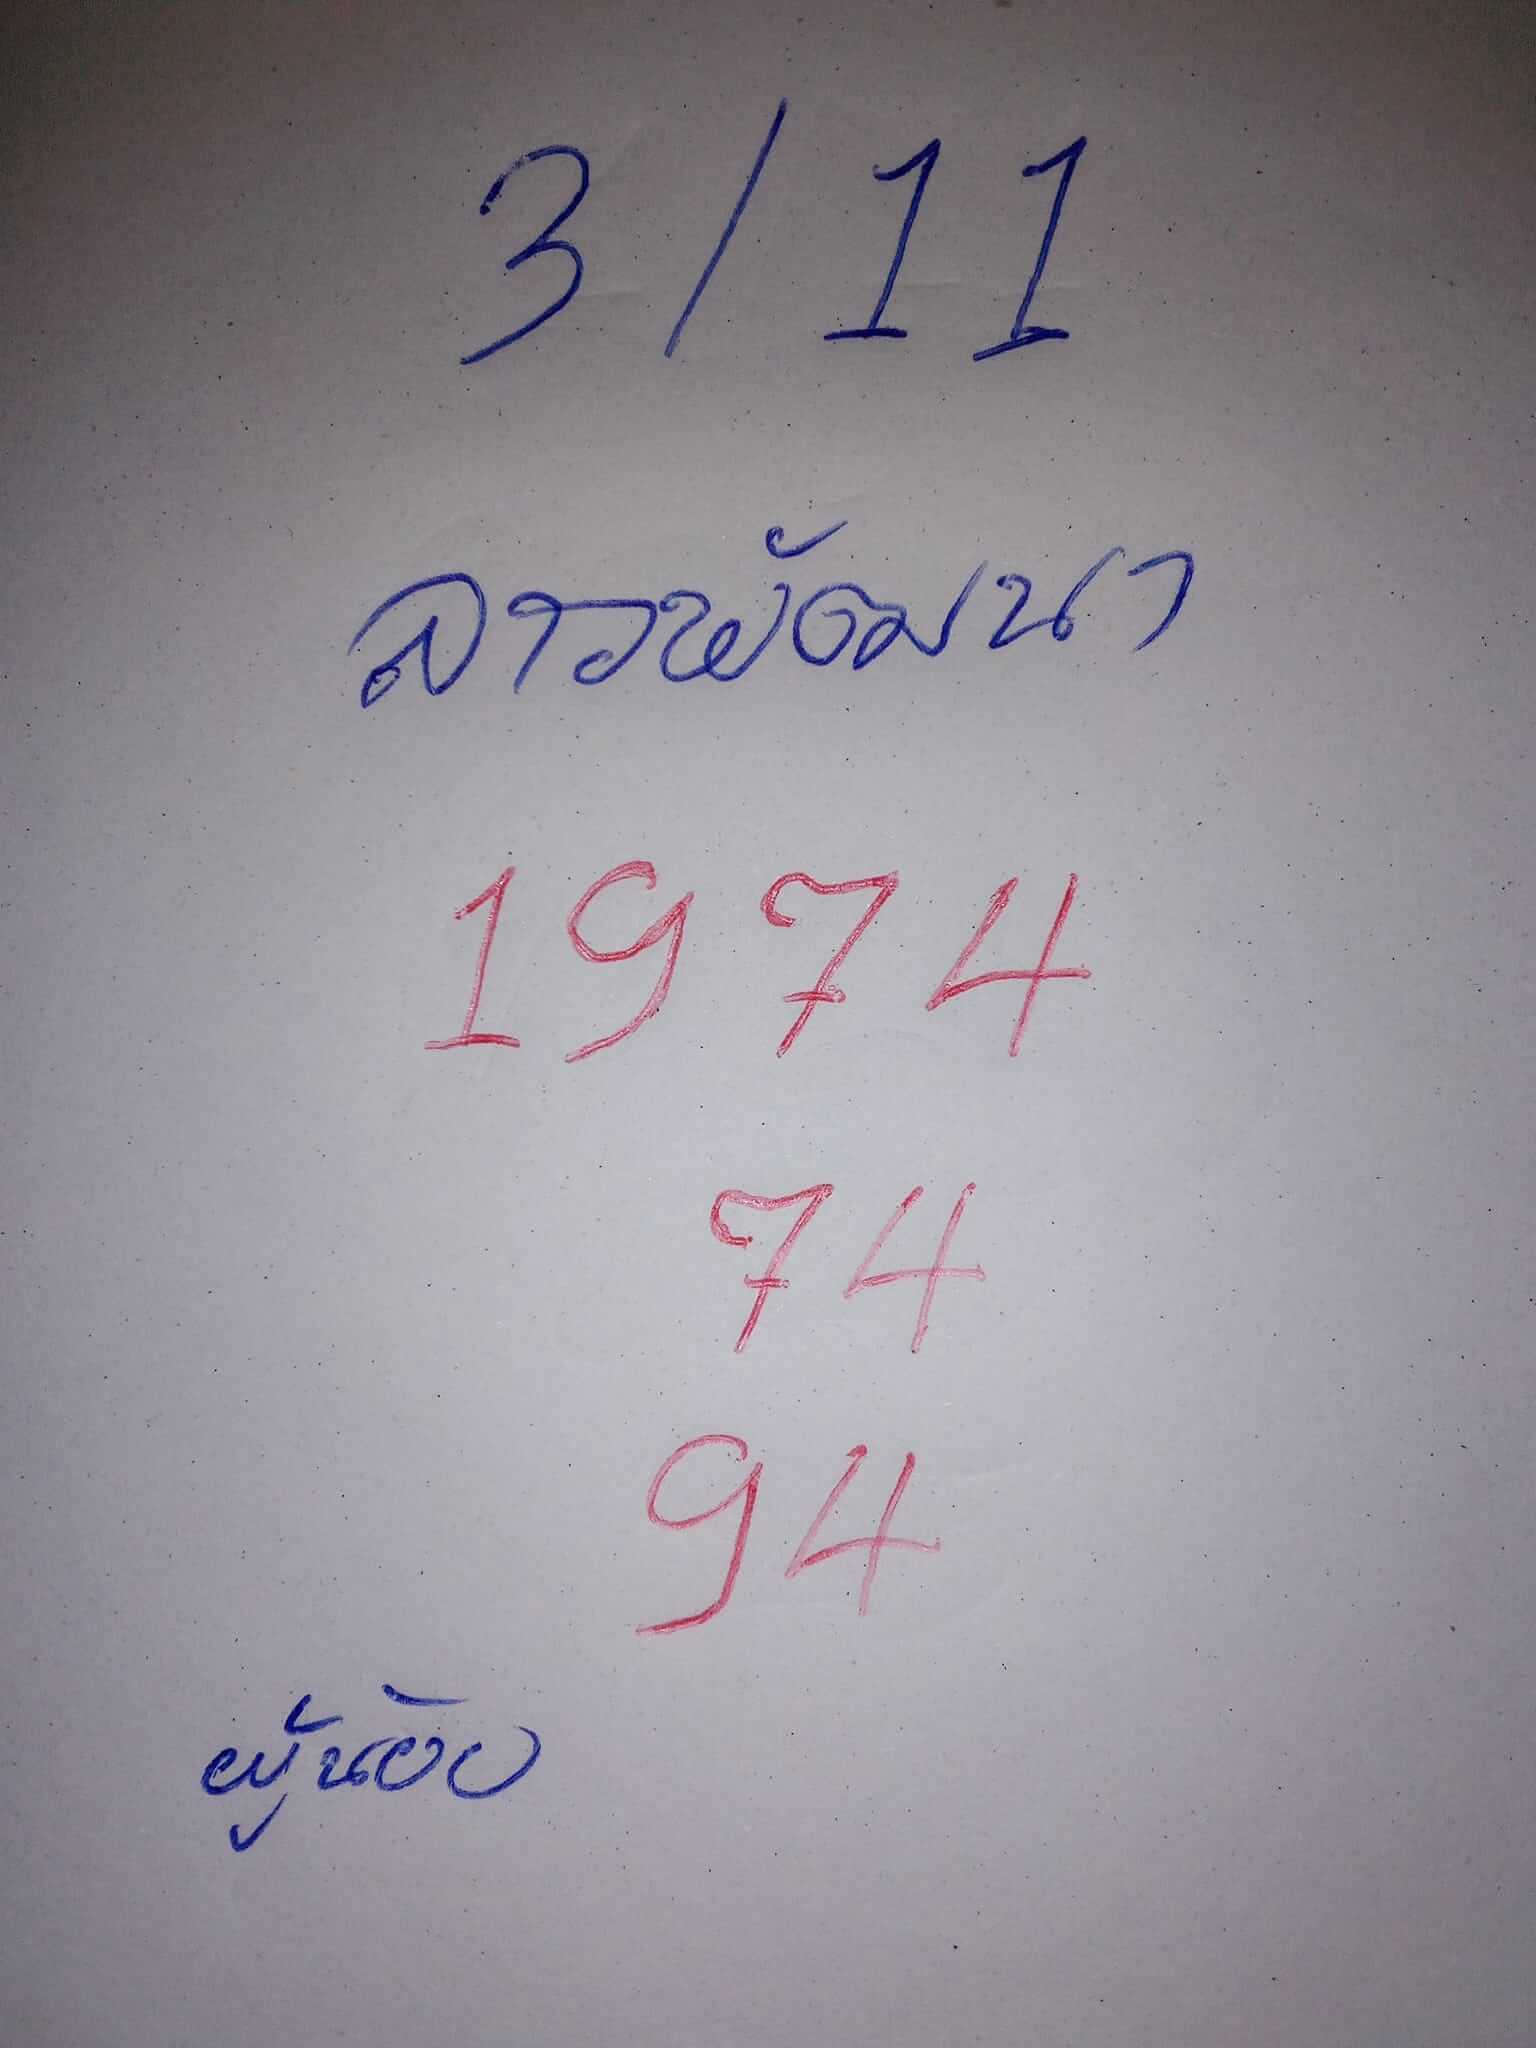 3/11
ลาวพัฒนา
1974
74
94
ผู้น้อย